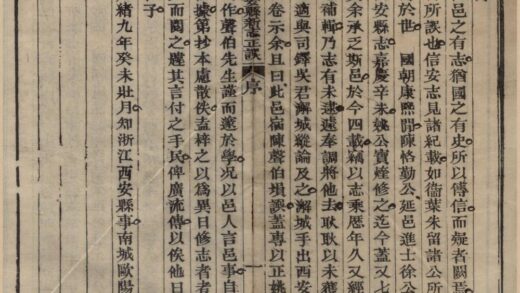 邑之有志猶國之有史所以傳信而疑者闕焉
所誤也信安志見諸紀載如衞葉朱留諸公所
於世　國朝康熙間陳恪勤公延邑進士徐公
安縣志嘉慶辛未姚公寶煃修之迄今蓋又七
余承乏斯邑於今四載竊以志乘厯年久又經
補輯乃志有未逮遽奉調將他去耿耿以未獲
適與司鐸吳君澥城縱論及之澥城手出西安
卷示余且曰此邑宿陳聲伯塤誤蓋專以正姚
縣新志正誤　序　一
作聲伯先生謹而邃於學况以邑人言邑事自
據第抄本慮散佚盍梓之以為異日修志者
而閱之韙其言付之手民俾廣流傳以俟他日
子
緒九年癸未壯月知浙江西安縣事南城歐陽